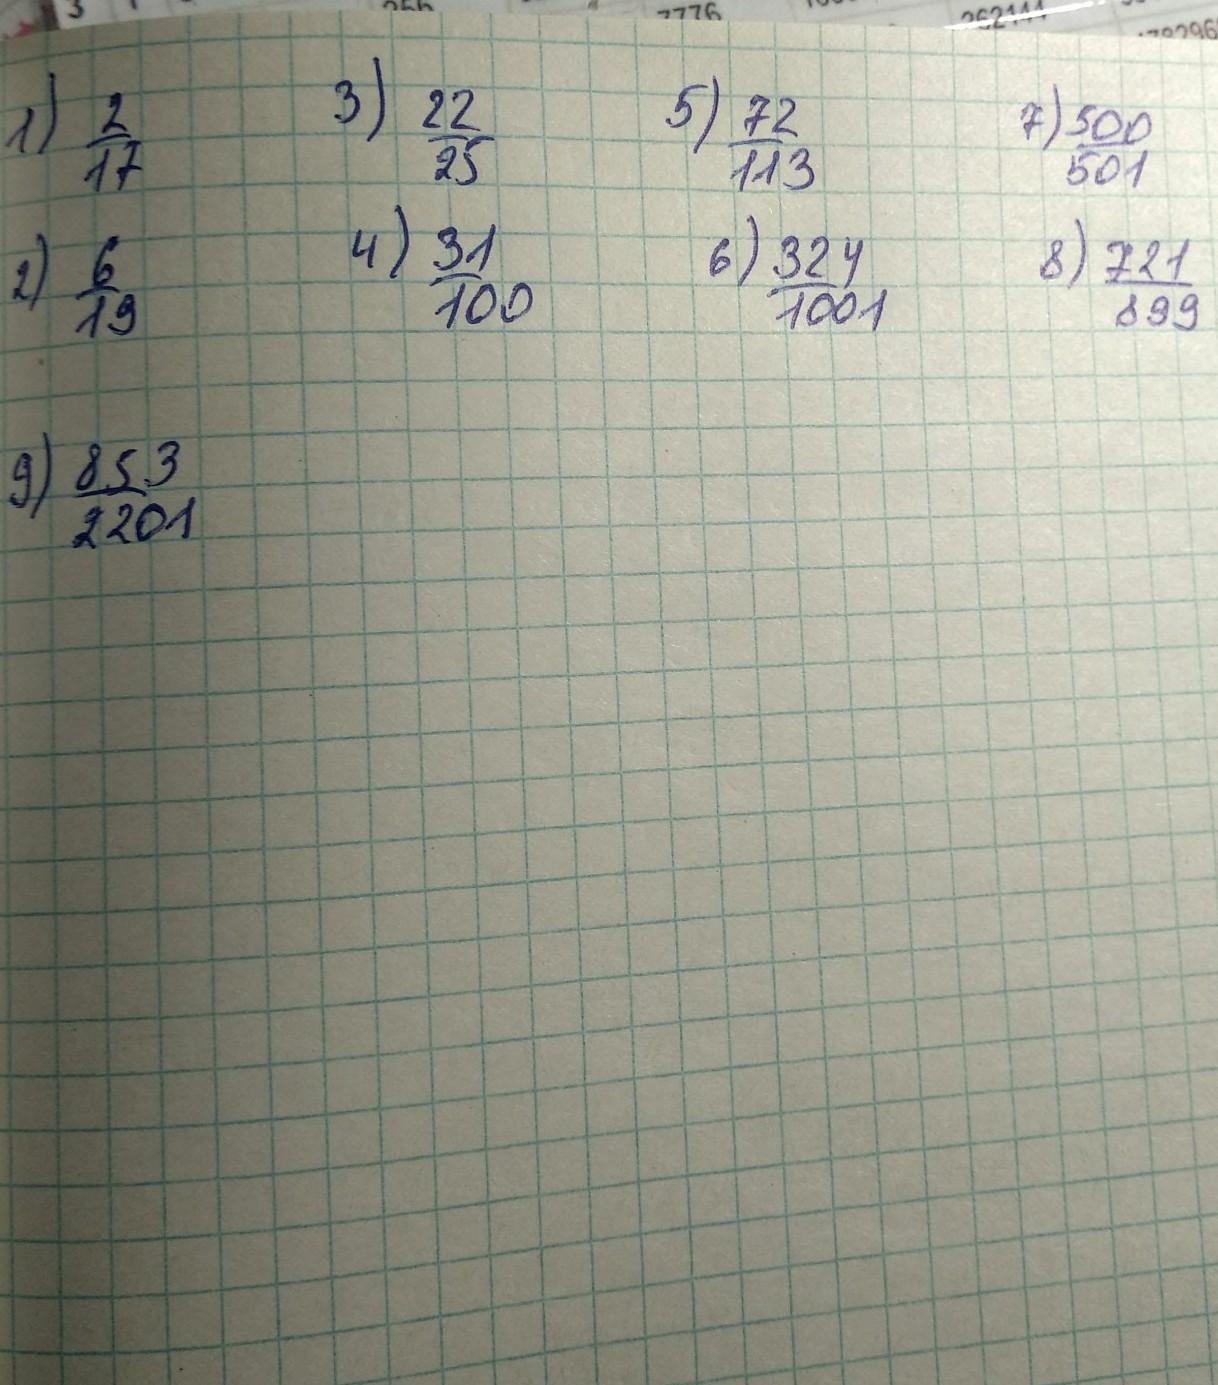 3
256
7776
262144
1) 2/17 3) 22/25 5) 72/113 7) 500/501
2) 6/19 4) 31/100 6) 324/1001 8) 721/899
9) 853/2201